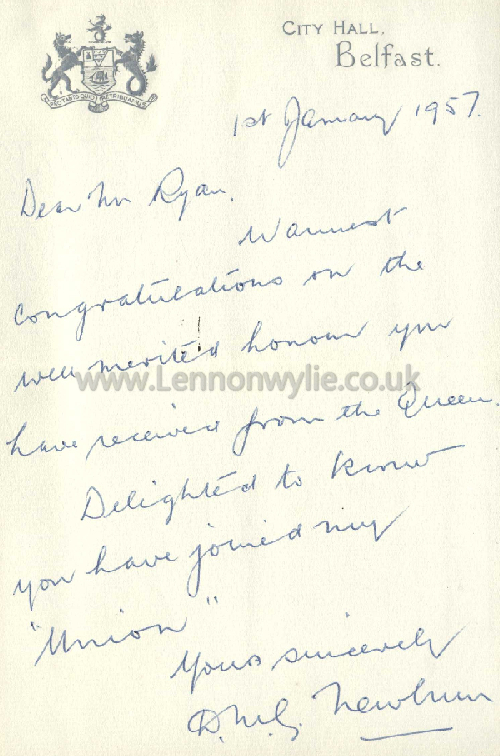 CITY HALL,
Belfast.
1st January 1957.
Dear Mr Ryan.
Warmest
congratulations on the
well merited honour you
www.Lennonwylie.co.uk
have received from the Queen.
Delighted to know
you have joined my
"Union"
Yours sincerely